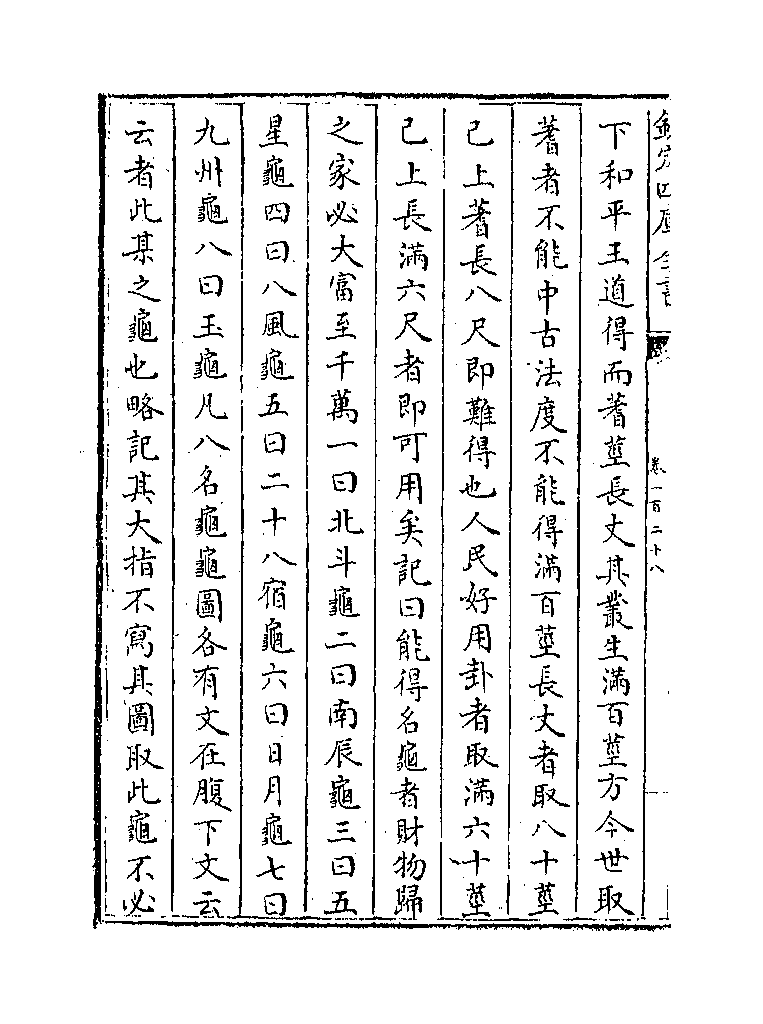 欽定四庫全書
卷一百二十八
下和平王道得而蓍莖長丈其叢生滿百莖方今世取
蓍者不能中古法度不能得滿百莖長丈者取八十莖
已上蓍長八尺即難得也人民好用卦者取滿六十莖
已上長滿六尺者即可用矣記曰能得名龜者財物歸
之家必大富至千萬一曰北斗龜二曰南辰龜三曰五
星龜四曰八風龜五曰二十八宿龜六曰日月龜七曰
九州龜八曰玉龜凡八名龜龜圖各有文在腹下文云
云者此某之龜也略記其大指不寫其圖取此龜不必